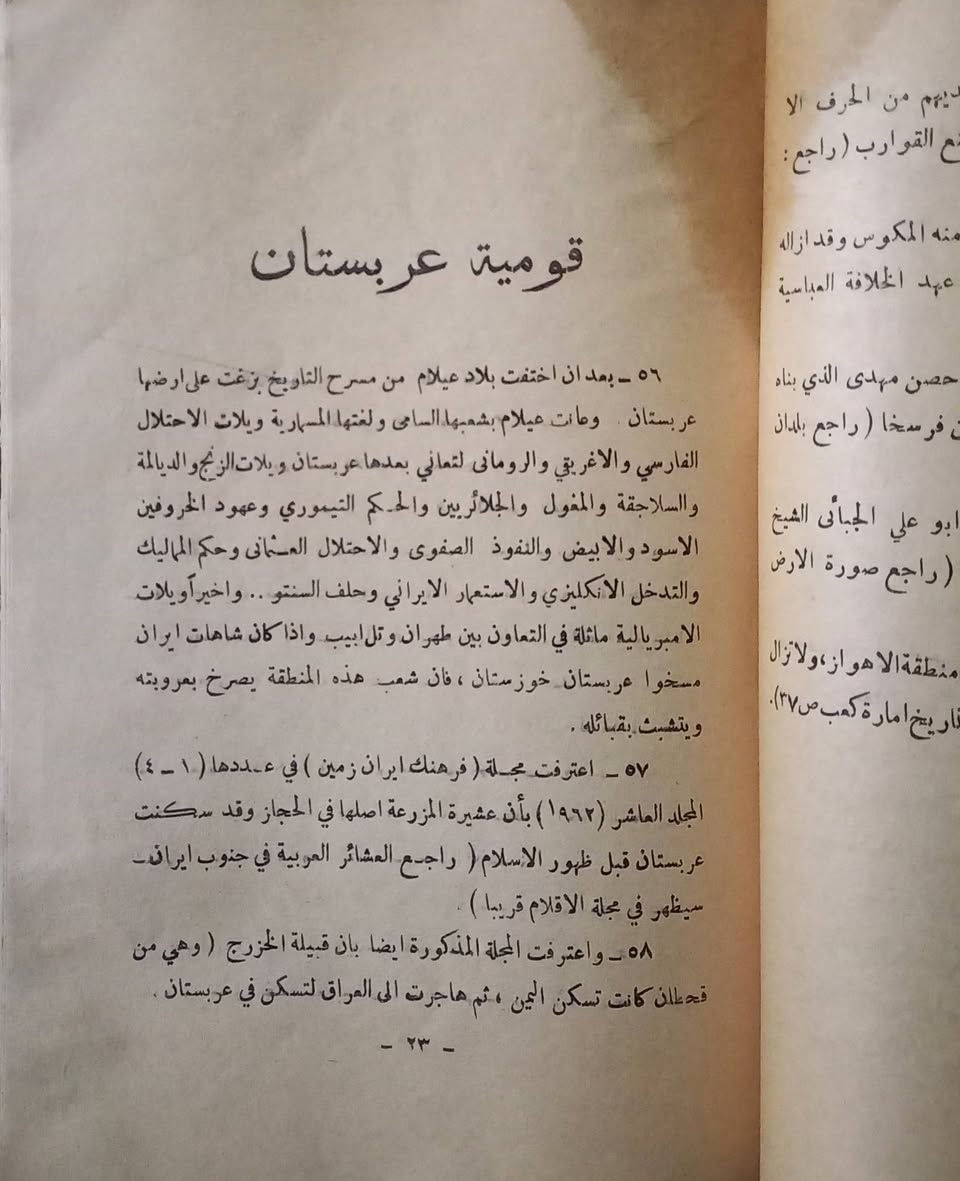 قومية عربستان
٥٦ ـ بعد ان اختفت بلاد عيلام من مسرح التاريخ بزغت على ارضها
عربستان . وعانت عيلام بشعبها السامى ولغتها المسمارية ويلات الاحتلال
الفارسي والاغريقي والرومانى لتعاني بعدها عربستان ويلات الزنج والديالمة
والسلاجقة والمغول والجلائريين والحكم التيموري وعهود الخروفين
الاسود والابيض والنفوذ الصفوى والاحتلال العثمانى وحكم المماليك
والتدخل الانكليزي والاستعمار الايراني وحلف السنتو .. واخيراً ويلات
الامبريالية ماثلة في التعاون بين طهران وتل ابيب واذا كان شاهات ايران
مسخوا عربستان خوزستان ، فان شعب هذه المنطقة يصرخ بعروبته
ويتشبث بقبائله .
٥٧ ـ اعترفت مجلة ( فرهنك ايران زمين ) في عددها ( ١ ـ ٤ )
المجلد العاشر ( ١٩٦٢ ) بأن عشيرة المزرعة اصلها في الحجاز وقد سكنت
عربستان قبل ظهور الاسلام ( راجع العشائر العربية في جنوب ايران ـ
سيظهر في مجلة الاقلام قريبا ) .
٥٨ ـ واعترفت المجلة المذكورة ايضا بان قبيلة الخزرج ( وهي من
قحطان كانت تسكن اليمن ، ثم هاجرت الى العراق لتسكن في عربستان .
ـ ٢٣ ـ
من الحرف الا
القوارب ( راجع :
منه المكوس وقد ازاله
عهد الخلافة العباسية
حصن مهدى الذي بناه
فرسخا ( راجع بلدان
ابو علي الجبائى الشيخ
( راجع صورة الارض
منطقة الاهواز ، ولا تزال
تاريخ امارة كعب ص ٣٧ ) .